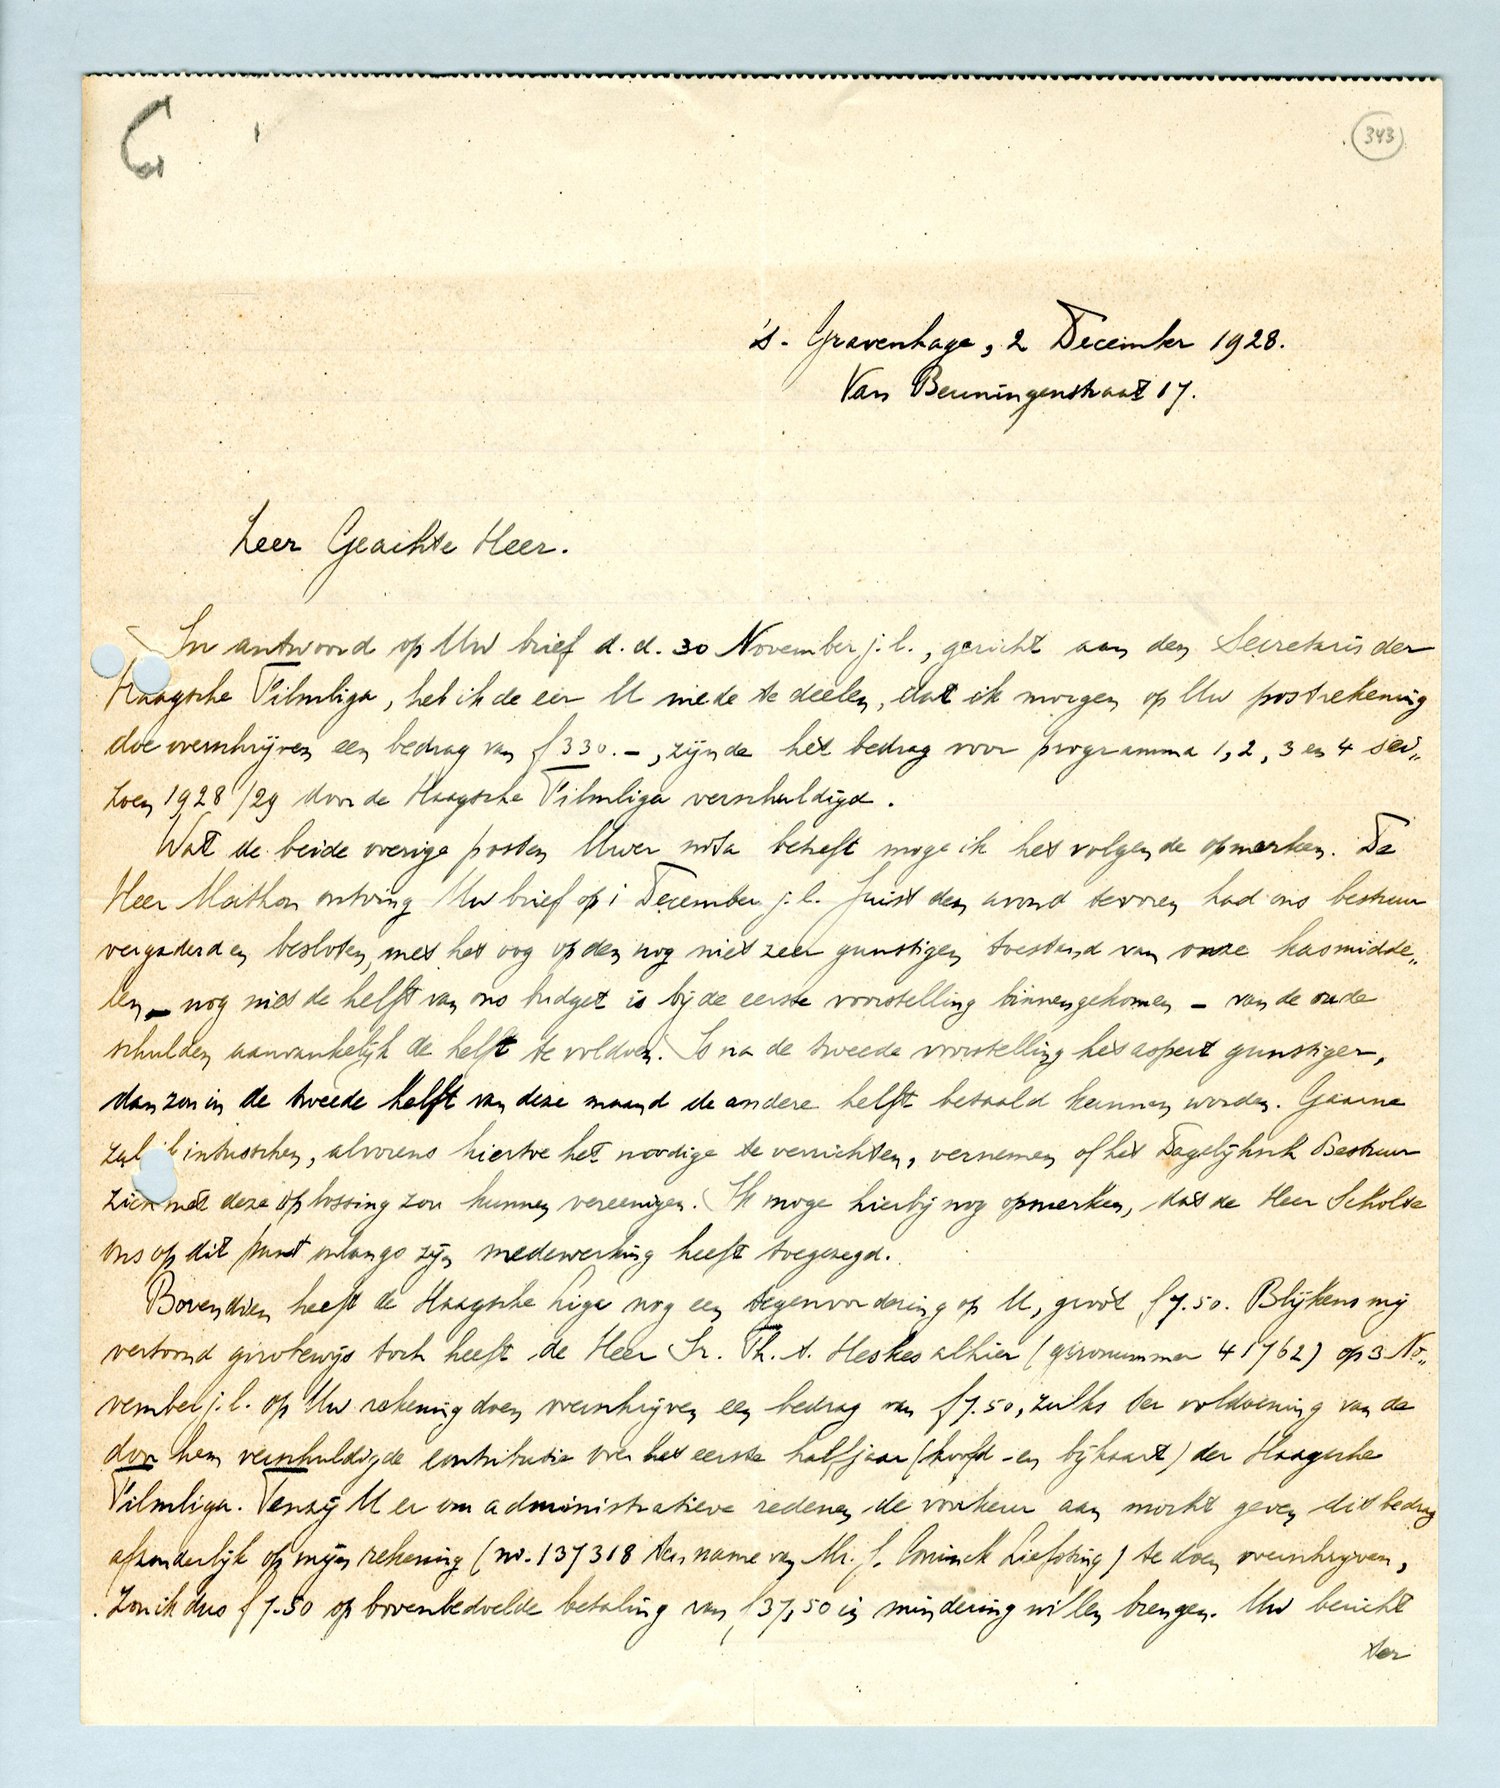 343
's-Gravenhage, 2 December 1928.
Van Beuningenstraat 17.
Zeer Geachte Heer.
In antwoord op Uw brief d.d. 30 November j.l., gericht aan den Secretaris der
Haagsche Filmliga, heb ik de eer U mede te deelen, dat ik morgen op Uw postrekening
doe overschrijven een bedrag van f 330.-, zijnde het bedrag voor programma 1, 2, 3 en 4 sei„
zoen 1928/29 door de Haagsche Filmliga verschuldigd.
Wat de beide overige posten Uwer nota betreft moge ik het volgende opmerken. De
Heer Mathon ontving Uw brief op 1 December j.l. Juist den avond tevoren had ons bestuur
vergaderd en besloten, met het oog op den nog niet zeer gunstigen toestand van onze kasmidde„
len - nog niet de helft van ons budget is bij de eerste voorstelling binnengekomen - van de oude
schulden aanvankelijk de helft te voldoen. Is na de tweede voorstelling het aspect gunstiger,
dan zou in de tweede helft van deze maand de andere helft betaald kunnen worden. Gaarne
zal ik intusschen, alvorens hiertoe het noodige te verrichten, vernemen of het Dagelijksch Bestuur
zich met deze oplossing zou kunnen vereenigen. Ik moge hierbij nog opmerken, dat de Heer Scholte
ons op dit punt onlangs zijn medewerking heeft toegezegd.
Bovendien heeft de Haagsche Liga nog een tegenvordering op U, groot f 7.50. Blijkens mij
vertoond girobewijs toch heeft de Heer Ir. Th. A. Heskes alhier (gironummer 41762) op 3 No„
vember j.l. op Uw rekening doen overschrijven een bedrag van f 7.50, zulks ter voldoening van de
door hem verschuldigde contributie over het eerste halfjaar (hoofd- en bijkaart) der Haagsche
Filmliga. Tenzij U er om administratieve redenen de voorkeur aan mocht geven dit bedrag
afzonderlijk op mijn rekening (no. 137318 ten name van Mr. J. Coninck Liefsting) te doen overschrijven,
zou ik dus f 7.50 op bovenbedoelde betaling van f 37,50 in mindering willen brengen. Uw bericht
ter